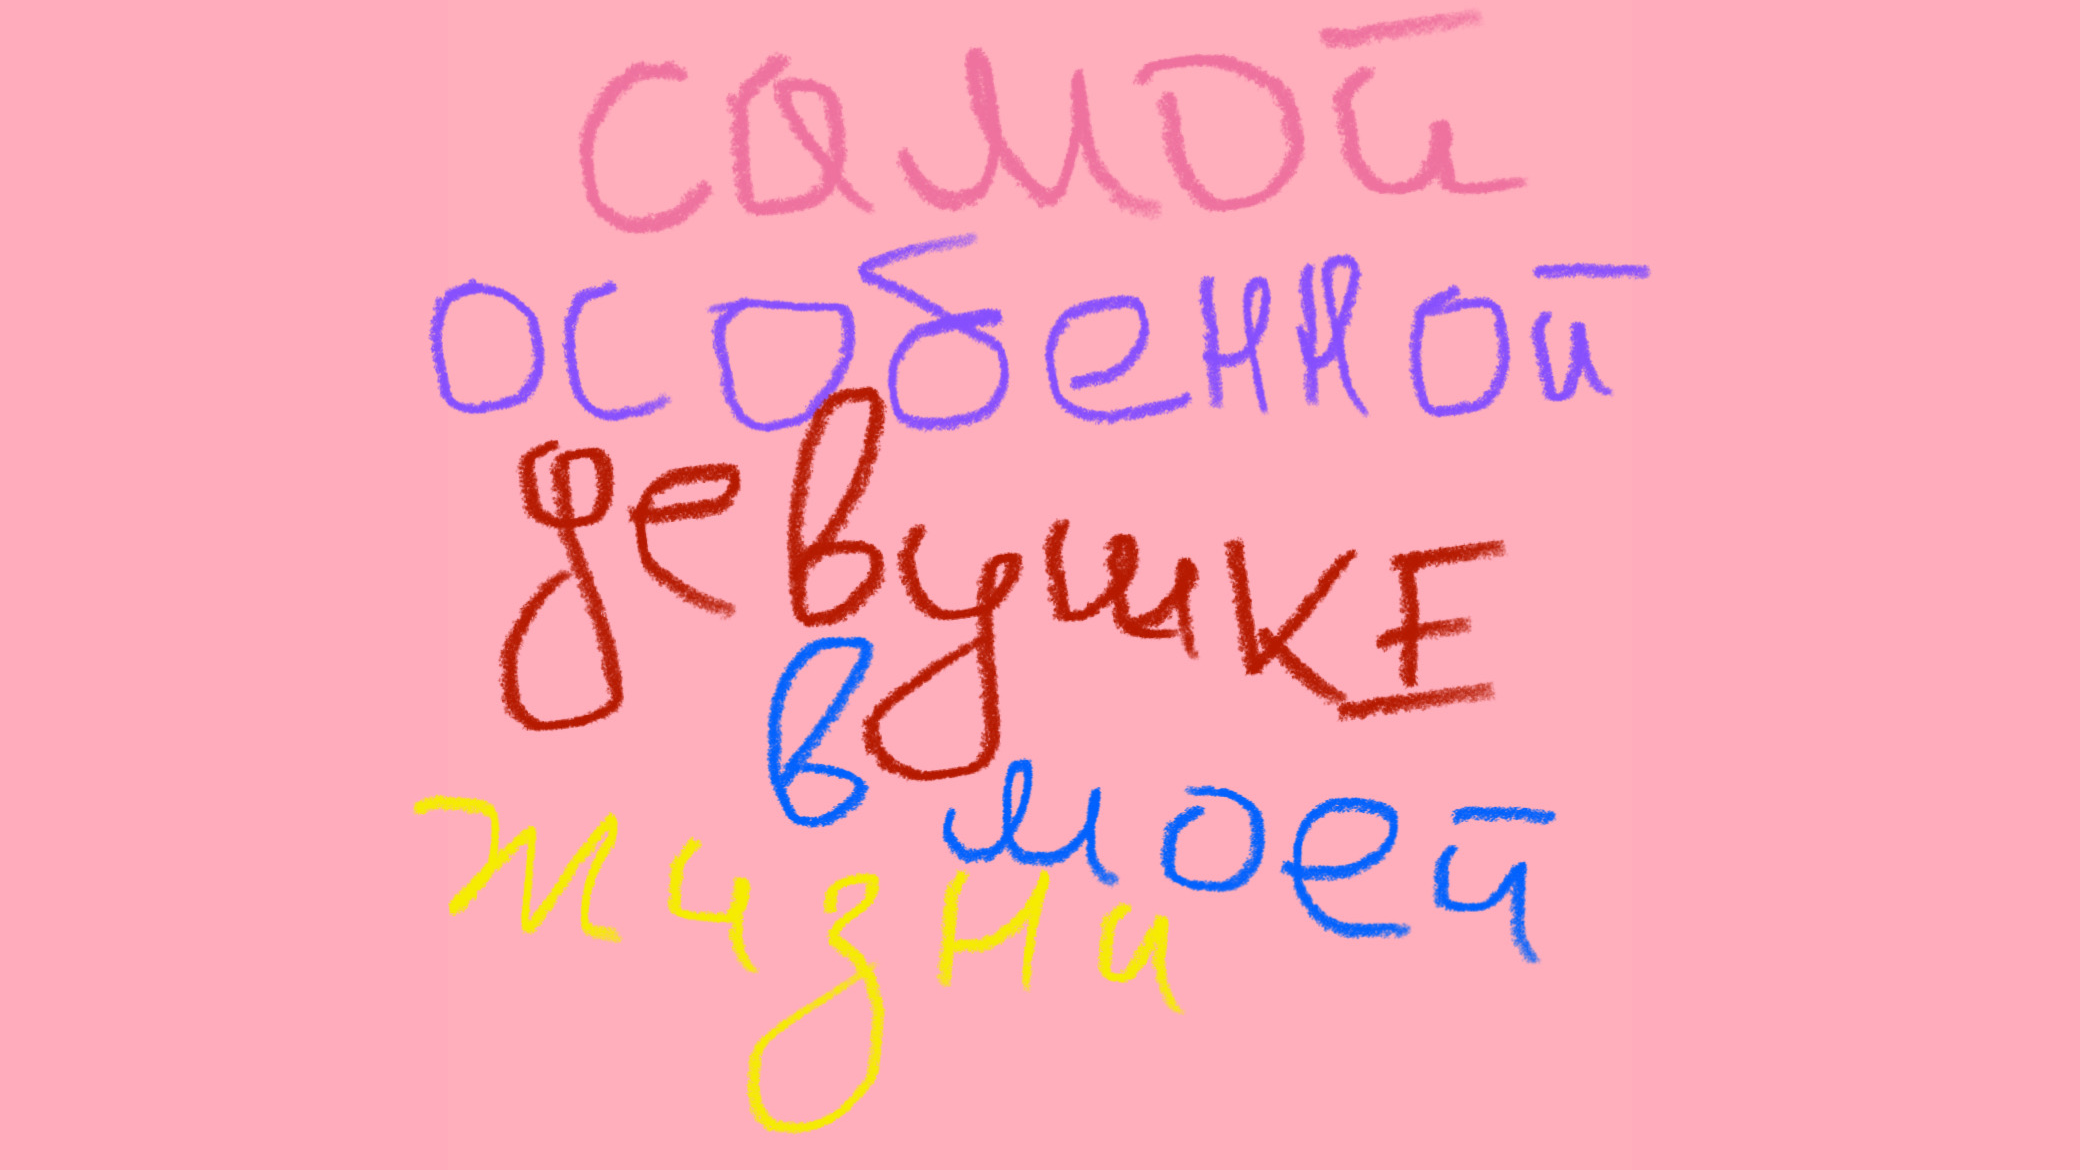 самой
особенной
девушкЕ
в моей
жизни